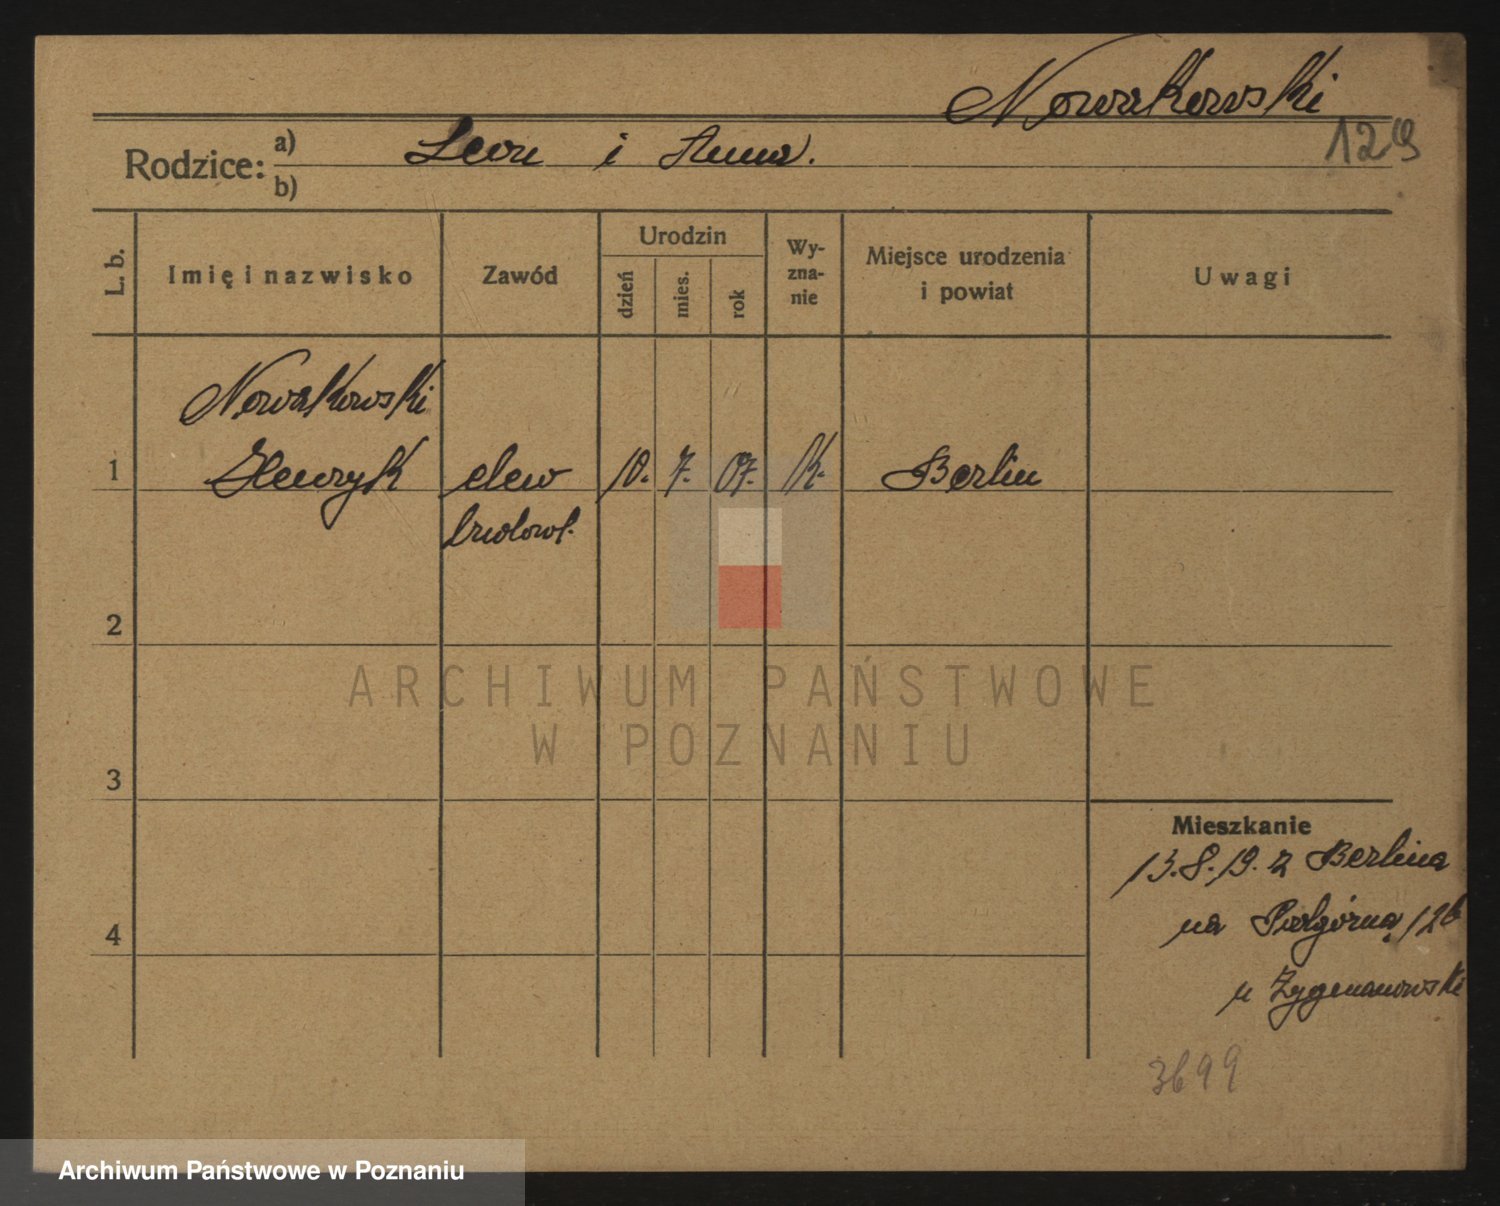 Nowakowski
129
Rodzice: a) Leon i Anna.
b)
L. b.
Imię i nazwisko
Zawód
Urodzin
dzień
mies.
rok
Wy-
zna-
nie
Miejsce urodzenia
i powiat
Uwagi
Nowakowski
1 Henryk elew 10. 7. 07. k. Berlin
budowl.
2
3
4
Mieszkanie
13.8.19. z Berlina
na Podgórna 12b
u Zygmanowski
3699
ARCHIWUM PAŃSTWOWE
W POZNANIU
Archiwum Państwowe w Poznaniu